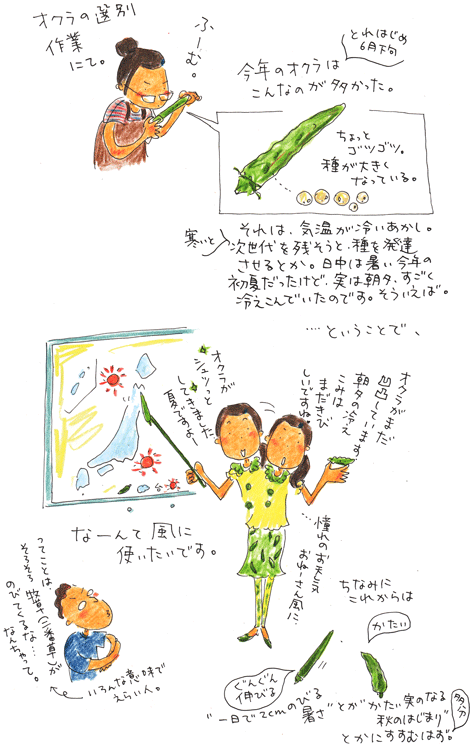 オクラの選別
作業
にて。
ふーむ。
とれはじめ
6月下旬
今年のオクラは
こんなのが多かった。
ちょっと
ゴツゴツ。
種が大きく
なっている。
それは、気温が冷いあかし。
寒いと
次世代を残そうと、種を発達
させるとか。日中は暑い今年の
初夏だったけど、実は朝夕、すごく
冷えこんでいたのです。そういえば。
…ということで、
オクラが
シュッと
してきました
夏ですよ。
オクラがまだ
凹凸しています
朝夕の冷え
こみは
まだきび
しいですね
なーんて風に
使いたいです。
…憧れのお天気
おねーさん風に、
ってことは
そろそろ牧草(二番草)が
のびてくるな…
なんちゃって。
いろんな意味で
えらい人。
ちなみに
これからは
かたい
ぐんぐん
伸びる
"一日で2cmのびる
暑さ"とか"かたい実のなる
秋のはじまり"
多分
とかにすすむはず。